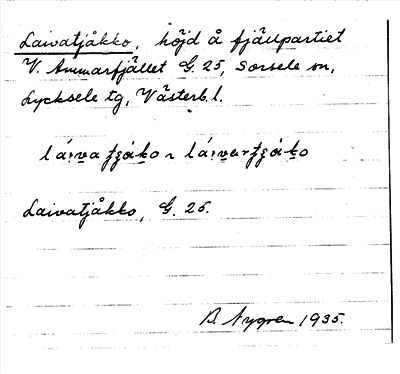 Laivatjåkko, höjd å fjällpartiet
V. Ammarfjället G. 25, Sorsele sn,
Lycksele tg, Västerb. l.
Laivatjåkko, G. 25.
B. Nygren 1935.